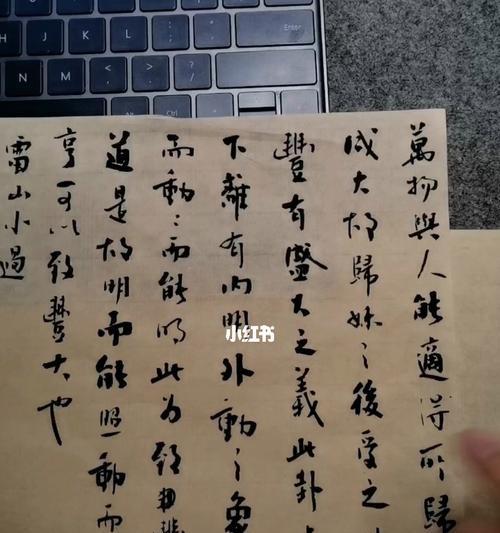 萬物與人能適得所歸
成大故歸妹之後受之
豐有盛大之義此卦
下離有内明外動之象
而動〻而能明此为致豐
道是故明而能照動而
亨可以致豐大也
雷山小過
小红书
J K L
N M